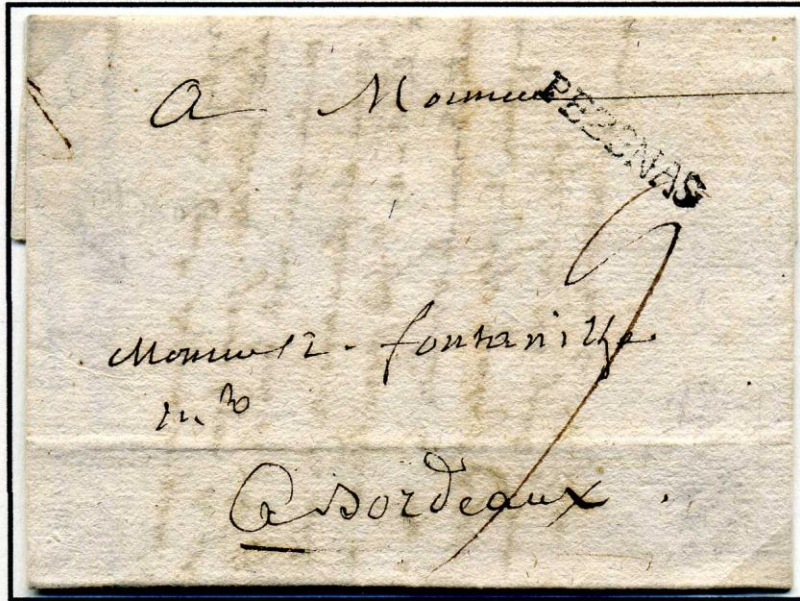 A Monsieur
PEZENAS
9
Monsieur fontanille
m^d
A Bordeaux.